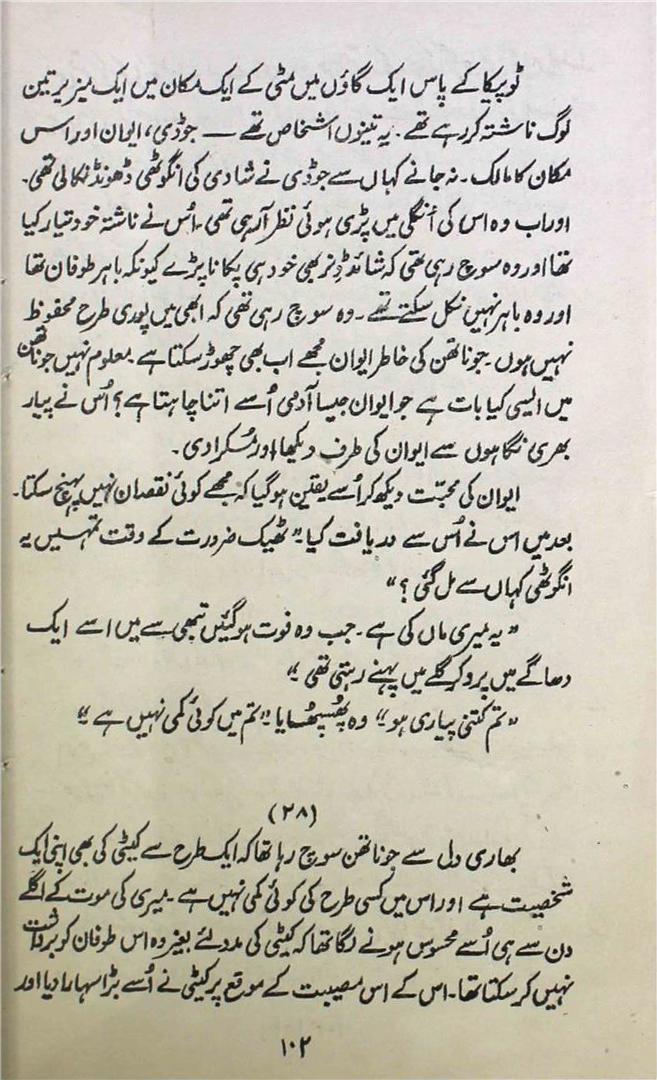 ٹوپیکا کے پاس ایک گاؤں میں مٹی کے ایک مکان میں ایک میز پر تین
لوگ ناشتہ کر رہے تھے۔ یہ تینوں اشخاص تھے — جوڈی، ایوان اور اس
مکان کا مالک۔ نہ جانے کہاں سے جوڈی نے شادی کی انگوٹھی ڈھونڈ نکالی تھی۔
اور اب وہ اس کی اُنگلی میں پڑی ہوئی نظر آ رہی تھی۔ اُس نے ناشتہ خود تیار کیا
تھا اور وہ سوچ رہی تھی کہ شائد ڈنر بھی خود ہی پکانا پڑے کیونکہ باہر طوفان تھا
اور وہ باہر نہیں نکل سکتے تھے۔ وہ سوچ رہی تھی کہ ابھی میں پوری طرح محفوظ
نہیں ہوں۔ جوناتھن کی خاطر ایوان مجھے اب بھی چھوڑ سکتا ہے۔ معلوم نہیں جوناتھن
میں ایسی کیا بات ہے جو ایوان جیسا آدمی اُسے اتنا چاہتا ہے؟ اُس نے پیار
بھری نگاہوں سے ایوان کی طرف دیکھا اور مُسکرا دی۔
ایوان کی محبّت دیکھ کر اُسے یقین ہو گیا کہ مجھے کوئی نقصان نہیں پہنچ سکتا۔
بعد میں اس نے اُس سے دریافت کیا۔ "ٹھیک ضرورت کے وقت تمہیں یہ
انگوٹھی کہاں سے مل گئی؟"
"یہ میری ماں کی ہے۔ جب وہ فوت ہو گئیں تبھی سے میں اسے ایک
دھاگے میں پرو کر گلے میں پہنے رہتی تھی۔"
"تم کتنی پیاری ہو" وہ پھُسپھُسایا۔ "تم میں کوئی کمی نہیں ہے۔"
(۲۸)
بھاری دل سے جوناتھن سوچ رہا تھا کہ ایک طرح سے کیٹی کی بھی اپنی ایک
شخصیت ہے اور اس میں کسی طرح کی کوئی کمی نہیں ہے۔ میری کی موت کے اگلے
دن سے ہی اُسے محسوس ہونے لگا تھا کہ کیٹی کی مدد لئے بغیر وہ اس طوفان کو برداشت
نہیں کر سکتا تھا۔ اس کے اس مصیبت کے موقع پر کیٹی نے اُسے بڑا سہارا دیا اور
۱۰۲